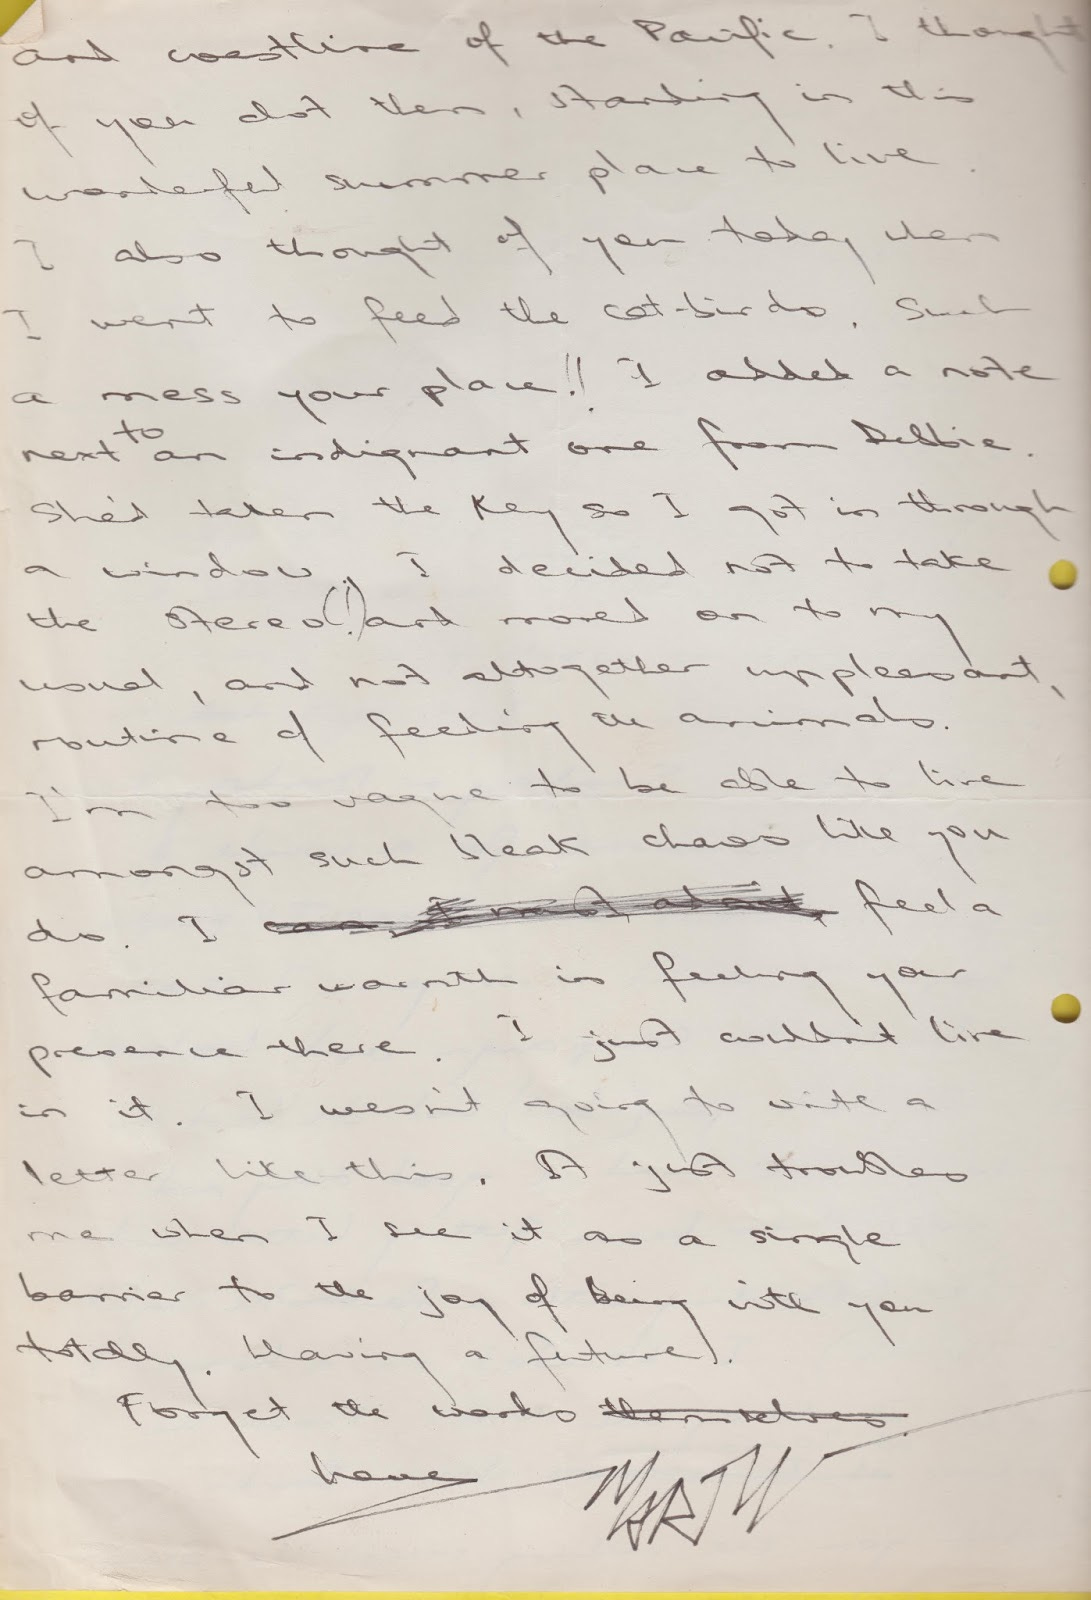 and coastline of the Pacific. I thought
of you alot then, standing in this
wonderful summer place to live.
I also thought of you today when
I went to feed the cat-birds. Such
a mess your place!! I added a note
next to an indignant one from Debbie.
She'd taken the key so I got in through
a window. I decided not to take
the stereo(!) and moved on to my
usual, and not altogether unpleasant,
routine of feeding the animals.
I'm too vague to be able to live
amongst such bleak chaos like you
do. I feel a
familiar warmth in feeling your
presence there. I just couldn't live
in it. I wasn't going to write a
letter like this. It just troubles
me when I see it as a single
barrier to the joy of being with you
totally. Having a future).
Forget the works themselves.
Love